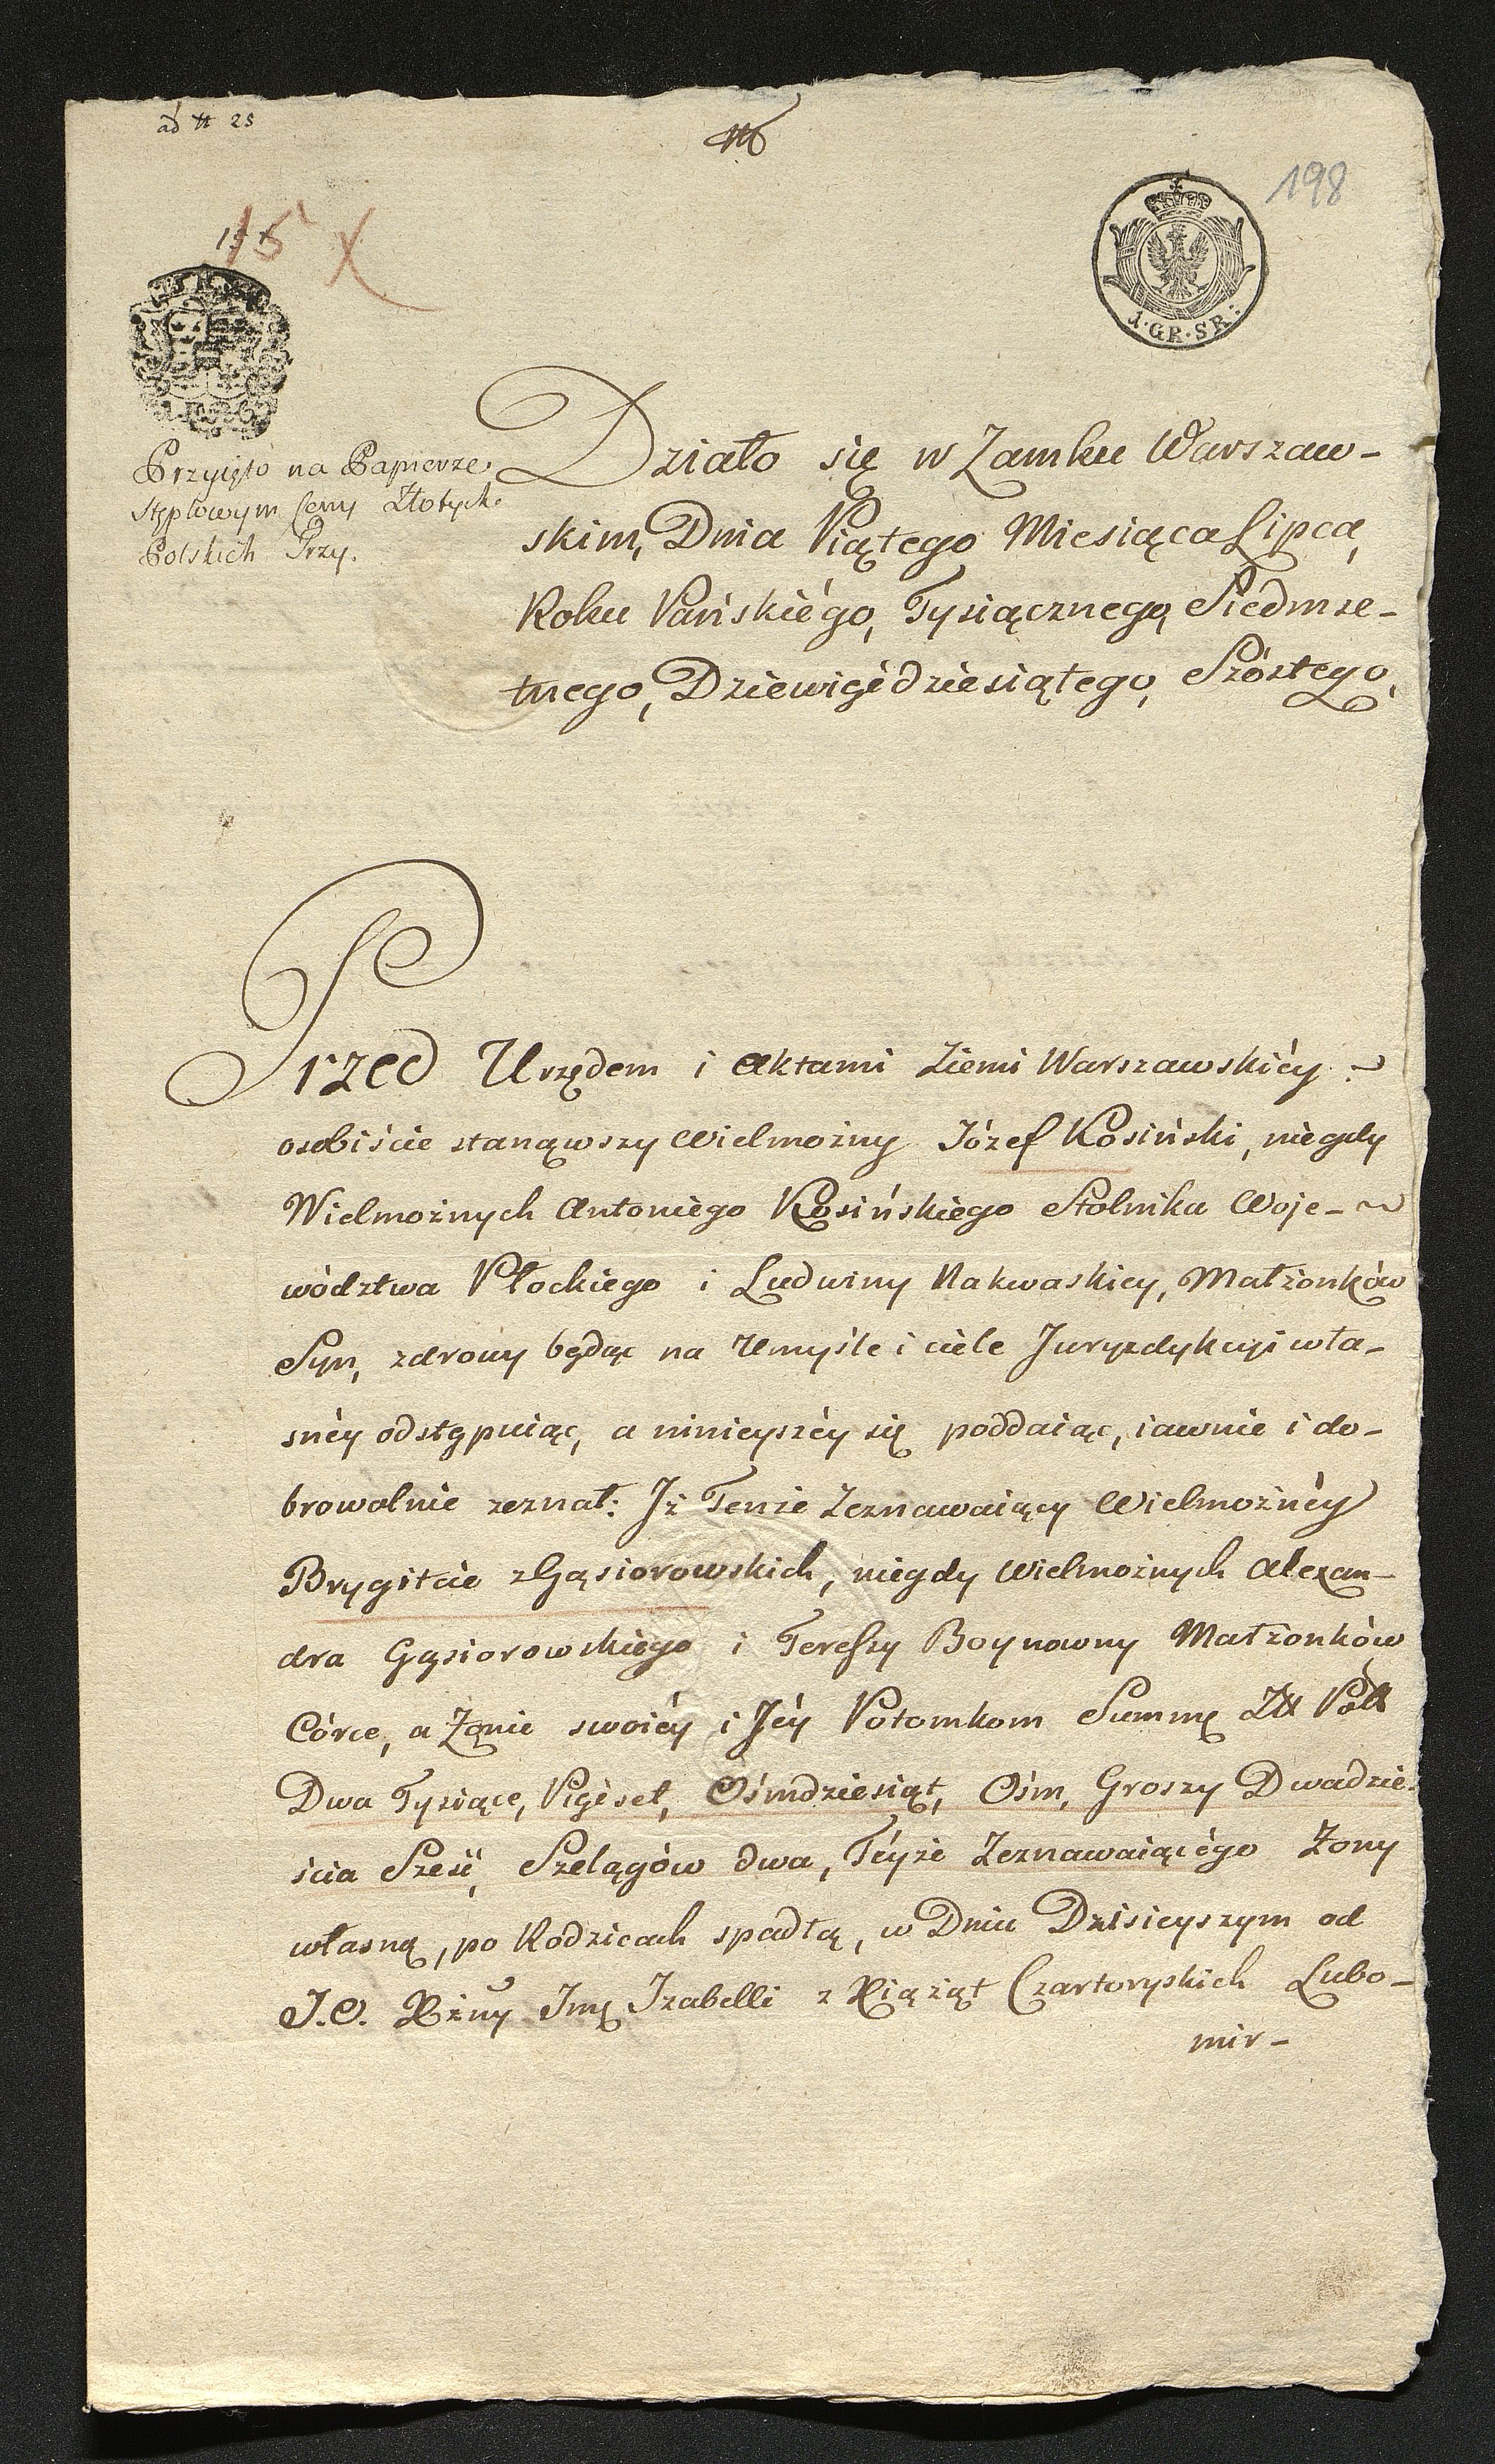 ad # 25
198
15 X
1·GR·SR:
Przyięto na Papierze
Stęplowym Ceny Złotych
Polskich Trzy.
Działo się w Zamku Warszaw-
skim, Dnia Piątego Miesiąca Lipca,
Roku Pańskiégo, Tysiącznego, Siedmse-
tnego, Dziewięćdziesiątego, Szóstego,
Przed Urzędem i Aktami Ziemi Warszawskiéy
osobiście stanąwszy Wielmożny Józef Kosiński, niegdy
Wielmożnych Antoniégo Kosińskiego Stolnika Woje-
wództwa Płockiego i Ludwiny Nakwaskiey, Małżonków
Syn, zdrowy będąc na Umyśle i ciele Juryzdykcyi wła-
snéy odstępuiąc, a ninieyszéy się poddaiąc, iawnie i do-
browolnie zeznał: Iż Tenże Zeznawaiący Wielmożnéy
Brygitcie z Gąsiorowskich, niegdy Wielmożnych Alexan-
dra Gąsiorowskiego i Teressy Boynowny Małżonków
Córce, a Żonie swoiéy i Jéy Potomkom Summę Złł Poll
Dwa Tysiące, Pięćset, Ośmdziesiąt, Ośm, Groszy Dwadzie-
ścia Sześć, Szelągów dwa, Téyże Zeznawaiącégo Żony
własną, po Rodzicach spadłą, w Dniu Dzisieyszym od
J.O. Xżny Imę Izabelli z Xiążąt Czartoryskich Lubo-
mir-